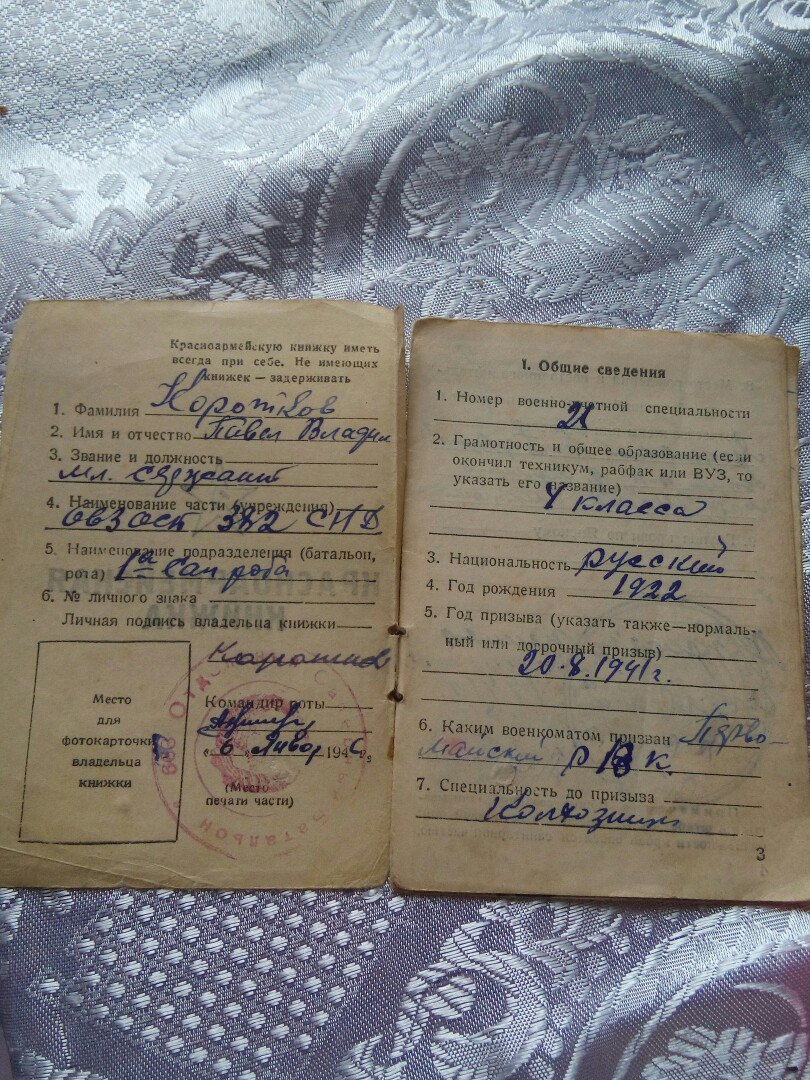 Красноармейскую книжку иметь
всегда при себе. Не имеющих
книжек — задерживать
1. Фамилия Коротков
2. Имя и отчество Павел Владим
3. Звание и должность
мл. сержант
4. Наименование части (учреждения)
382
5. Наименование подразделения (батальон,
рота) 1ая Сан рота
6. № личного знака
Личная подпись владельца книжки
Коротков
Место
для
фотокарточки
владельца
книжки
Командир роты
„6" 194
(Место
печати части)
I. Общие сведения
1. Номер военно-учетной специальности
21
2. Грамотность и общее образование (если
окончил техникум, рабфак или ВУЗ, то
указать его название)
4 класса
3. Национальность русский
4. Год рождения 1922
5. Год призыва (указать также—нормаль-
ный или досрочный призыв)
20.8.1941г.
6. Каким военкоматом призван Перво-
майский РВК.
7. Специальность до призыва
Колхозник
3